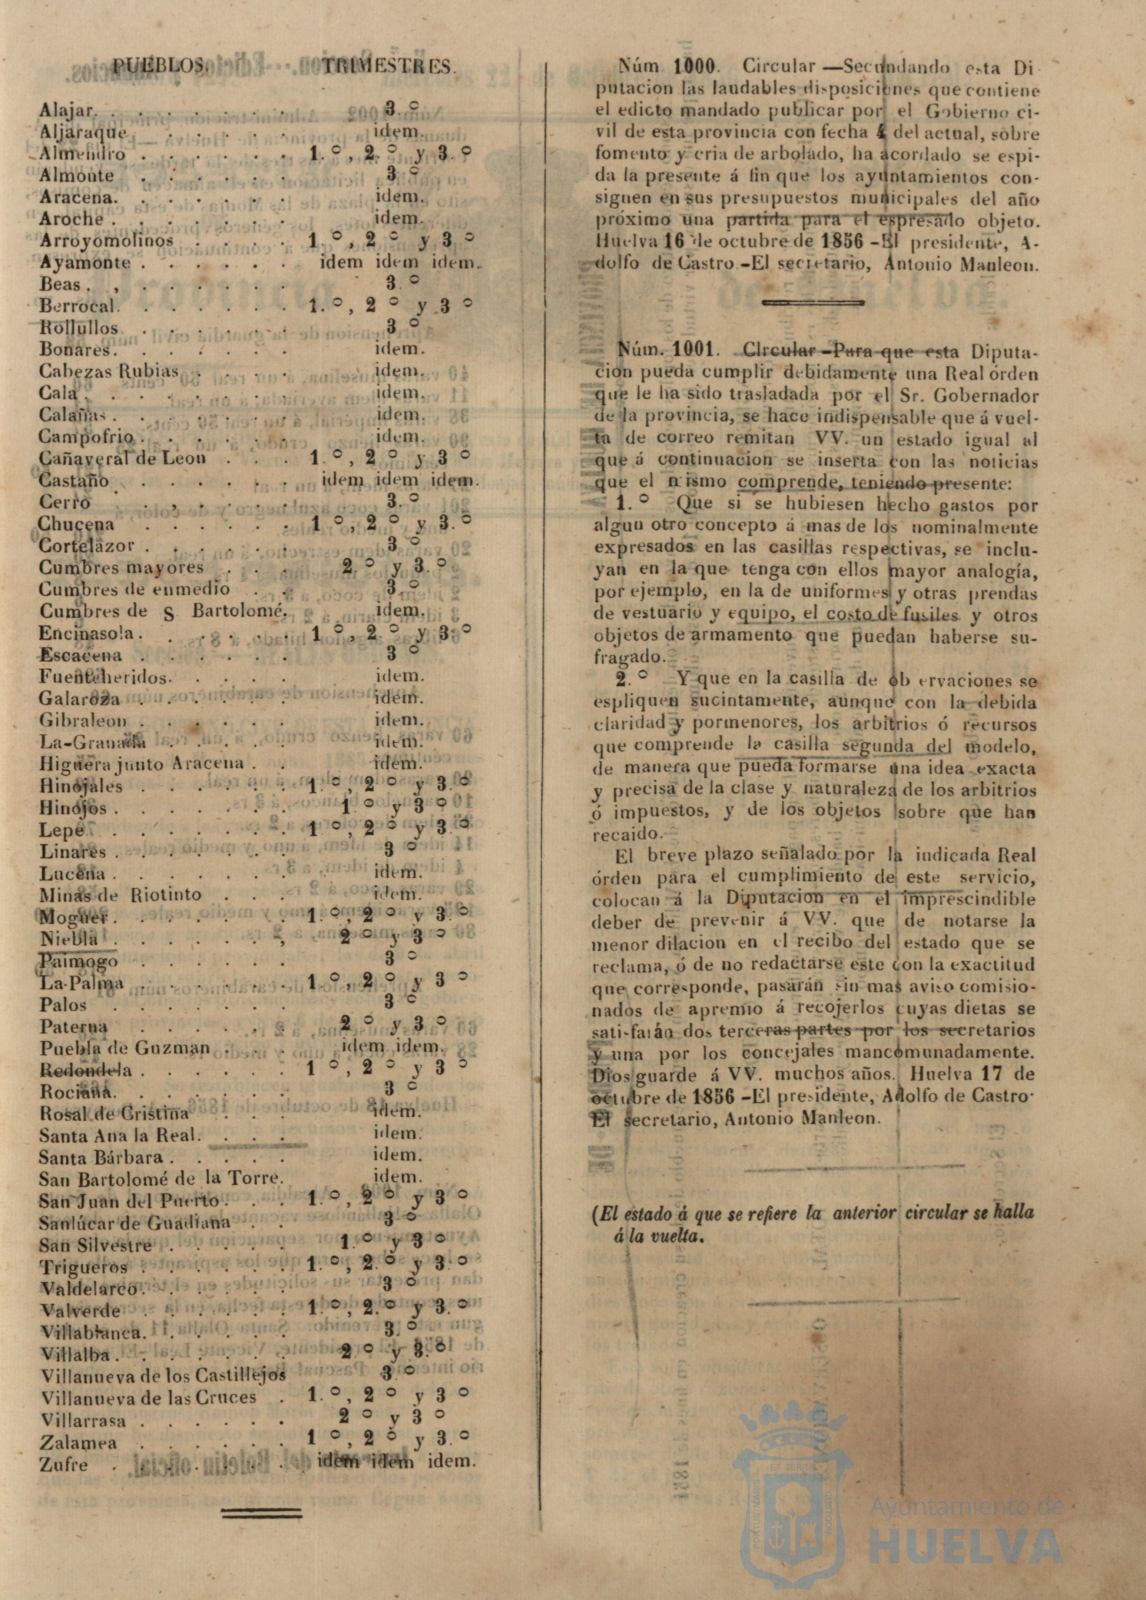 PUEBLOS. TRIMESTRES.
Alajar. . . . . . . . 3.º
Aljaraque . . . . . . idem.
Almendro . . . . . . 1.º, 2.º y 3.º
Almonte . . . . . . 3 º
Aracena. . . . . . . idem.
Aroche . . . . . . . idem.
Arroyomolinos . . . . 1 º, 2 º y 3 º
Ayamonte . . . . . . idem idem idem.
Beas . , . . . . . . 3 º
Berrocal. . . . . . . 1.º, 2 º y 3 º
Rollullos . . . . . . 3 º
Bonares. . . . . . . idem.
Cabezas Rubias . . . . idem.
Cala . . . . . . . . idem.
Calañas . . . . . . . idem.
Campofrio . . . . . . idem.
Cañaveral de Leon . . . 1.º, 2 º y 3 º
Castaño . . . . . . . idem idem idem.
Cerro . , . . . . 3.º
Chucena . . . . . . 1 º, 2 º y 3.º
Cortelazor . . . . . . 3 º
Cumbres mayores . . . 2.º y 3.º
Cumbres de enmedio . . . 3.º
Cumbres de S Bartolomé. idem.
Encinasola . . . . . . 1 º, 2 º y 3.º
Escacena . . . . . . 3 º
Fuenteheridos. . . . . idem.
Galaroza . . . . . . idem.
Gibraleon . . . . . . idem.
La-Granada . . . . . idem.
Higuera junto Aracena . . idem.
Hinojales . . . . . . 1 º, 2 º y 3.º
Hinojos . . . . . . . 1 º y 3 º
Lepe . . . . . . . 1 º, 2 º y 3 º
Linares . . . . . . . 3 º
Lucena . . . . . . . idem.
Minas de Riotinto . . . idem.
Moguer. . . . . . . 1.º, 2 º y 3.º
Niebla . . . . . . , 2 º y 3 º
Paimogo . . . . . . 3 º
La-Palma . . . . . . 1 º, 2 º y 3 º
Palos . . . . . . . 3 º
Paterna . . . . . . 2 º y 3 º
Puebla de Guzman . . . idem idem.
Redondela . . . . . . 1 º, 2 º y 3 º
Rociana. . . . . . . 3 º
Rosal de Cristina . . . idem.
Santa Ana la Real. . . . idem.
Santa Bárbara . . . . . idem.
San Bartolomé de la Torre. idem.
San Juan del Puerto . . . 1.º, 2 º y 3 º
Sanlúcar de Guadiana . . 3 º
San Silvestre . . . . . 1.º y 3 º
Trigueros . . . . . . 1.º, 2.º y 3.º
Valdelarco . . . . . . 3 º
Valverde . . . . . . 1.º, 2.º y 3.º
Villablanca. . . . . . 3.º
Villalba . . . . . . . 2 º y 3.º
Villanueva de los Castillejos 3 º
Villanueva de las Cruces . 1.º, 2 º y 3 º
Villarrasa . . . . . . 2 º y 3 º
Zalamea . . . . . . 1 º, 2 º y 3.º
Zufre . . . . . . . idem idem idem.
Núm 1000. Circular —Secundando esta Di
putacion las laudables disposiciones que contiene
el edicto mandado publicar por el Gobierno ci-
vil de esta provincia con fecha 4 del actual, sobre
fomento y cria de arbolado, ha acordado se espi-
da la presente á fin que los ayuntamientos con-
siguen en sus presupuestos municipales del año
próximo una partida para el espresado objeto.
Huelva 16 de octubre de 1856 -El presidente, A-
dolfo de Castro -El secretario, Antonio Manleon.
Núm. 1001. Circular -Para que esta Diputa-
cion pueda cumplir debidamente una Real órden
que le ha sido trasladada por el Sr. Gobernador
de la provincia, se hace indispensable que á vuel-
ta de correo remitan VV. un estado igual al
que á continuacion se inserta con las noticias
que el mismo comprende, teniendo presente:
1. º Que si se hubiesen hecho gastos por
algun otro concepto á mas de los nominalmente
expresados en las casillas respectivas, se inclu-
yan en la que tenga con ellos mayor analogía,
por ejemplo, en la de uniformes y otras prendas
de vestuario y equipo, el costo de fusiles y otros
objetos de armamento que puedan haberse su-
fragado.
2. º Y que en la casilla de ob ervaciones se
espliquen sucintamente, aunque con la debida
claridad y pormenores, los arbitrios ó recursos
que comprende la casilla segunda del modelo,
de manera que pueda formarse una idea exacta
y precisa de la clase y naturaleza de los arbitrios
ó impuestos, y de los objetos sobre que han
recaido.
El breve plazo señalado por la indicada Real
órden para el cumplimiento de este servicio,
colocan á la Diputacion en el imprescindible
deber de prevenir á VV. que de notarse la
menor dilacion en el recibo del estado que se
reclama, ó de no redactarse este con la exactitud
que corresponde, pasarán sin mas aviso comisio-
nados de apremio á recojerlos cuyas dietas se
satisfarán dos terceras partes por los secretarios
y una por los concejales mancomunadamente.
Dios guarde á VV. muchos años. Huelva 17 de
octubre de 1856 -El presidente, Adolfo de Castro-
El secretario, Antonio Manleon.
(El estado á que se refiere la anterior circular se halla
á la vuelta.
Ayuntamiento de
HUELVA